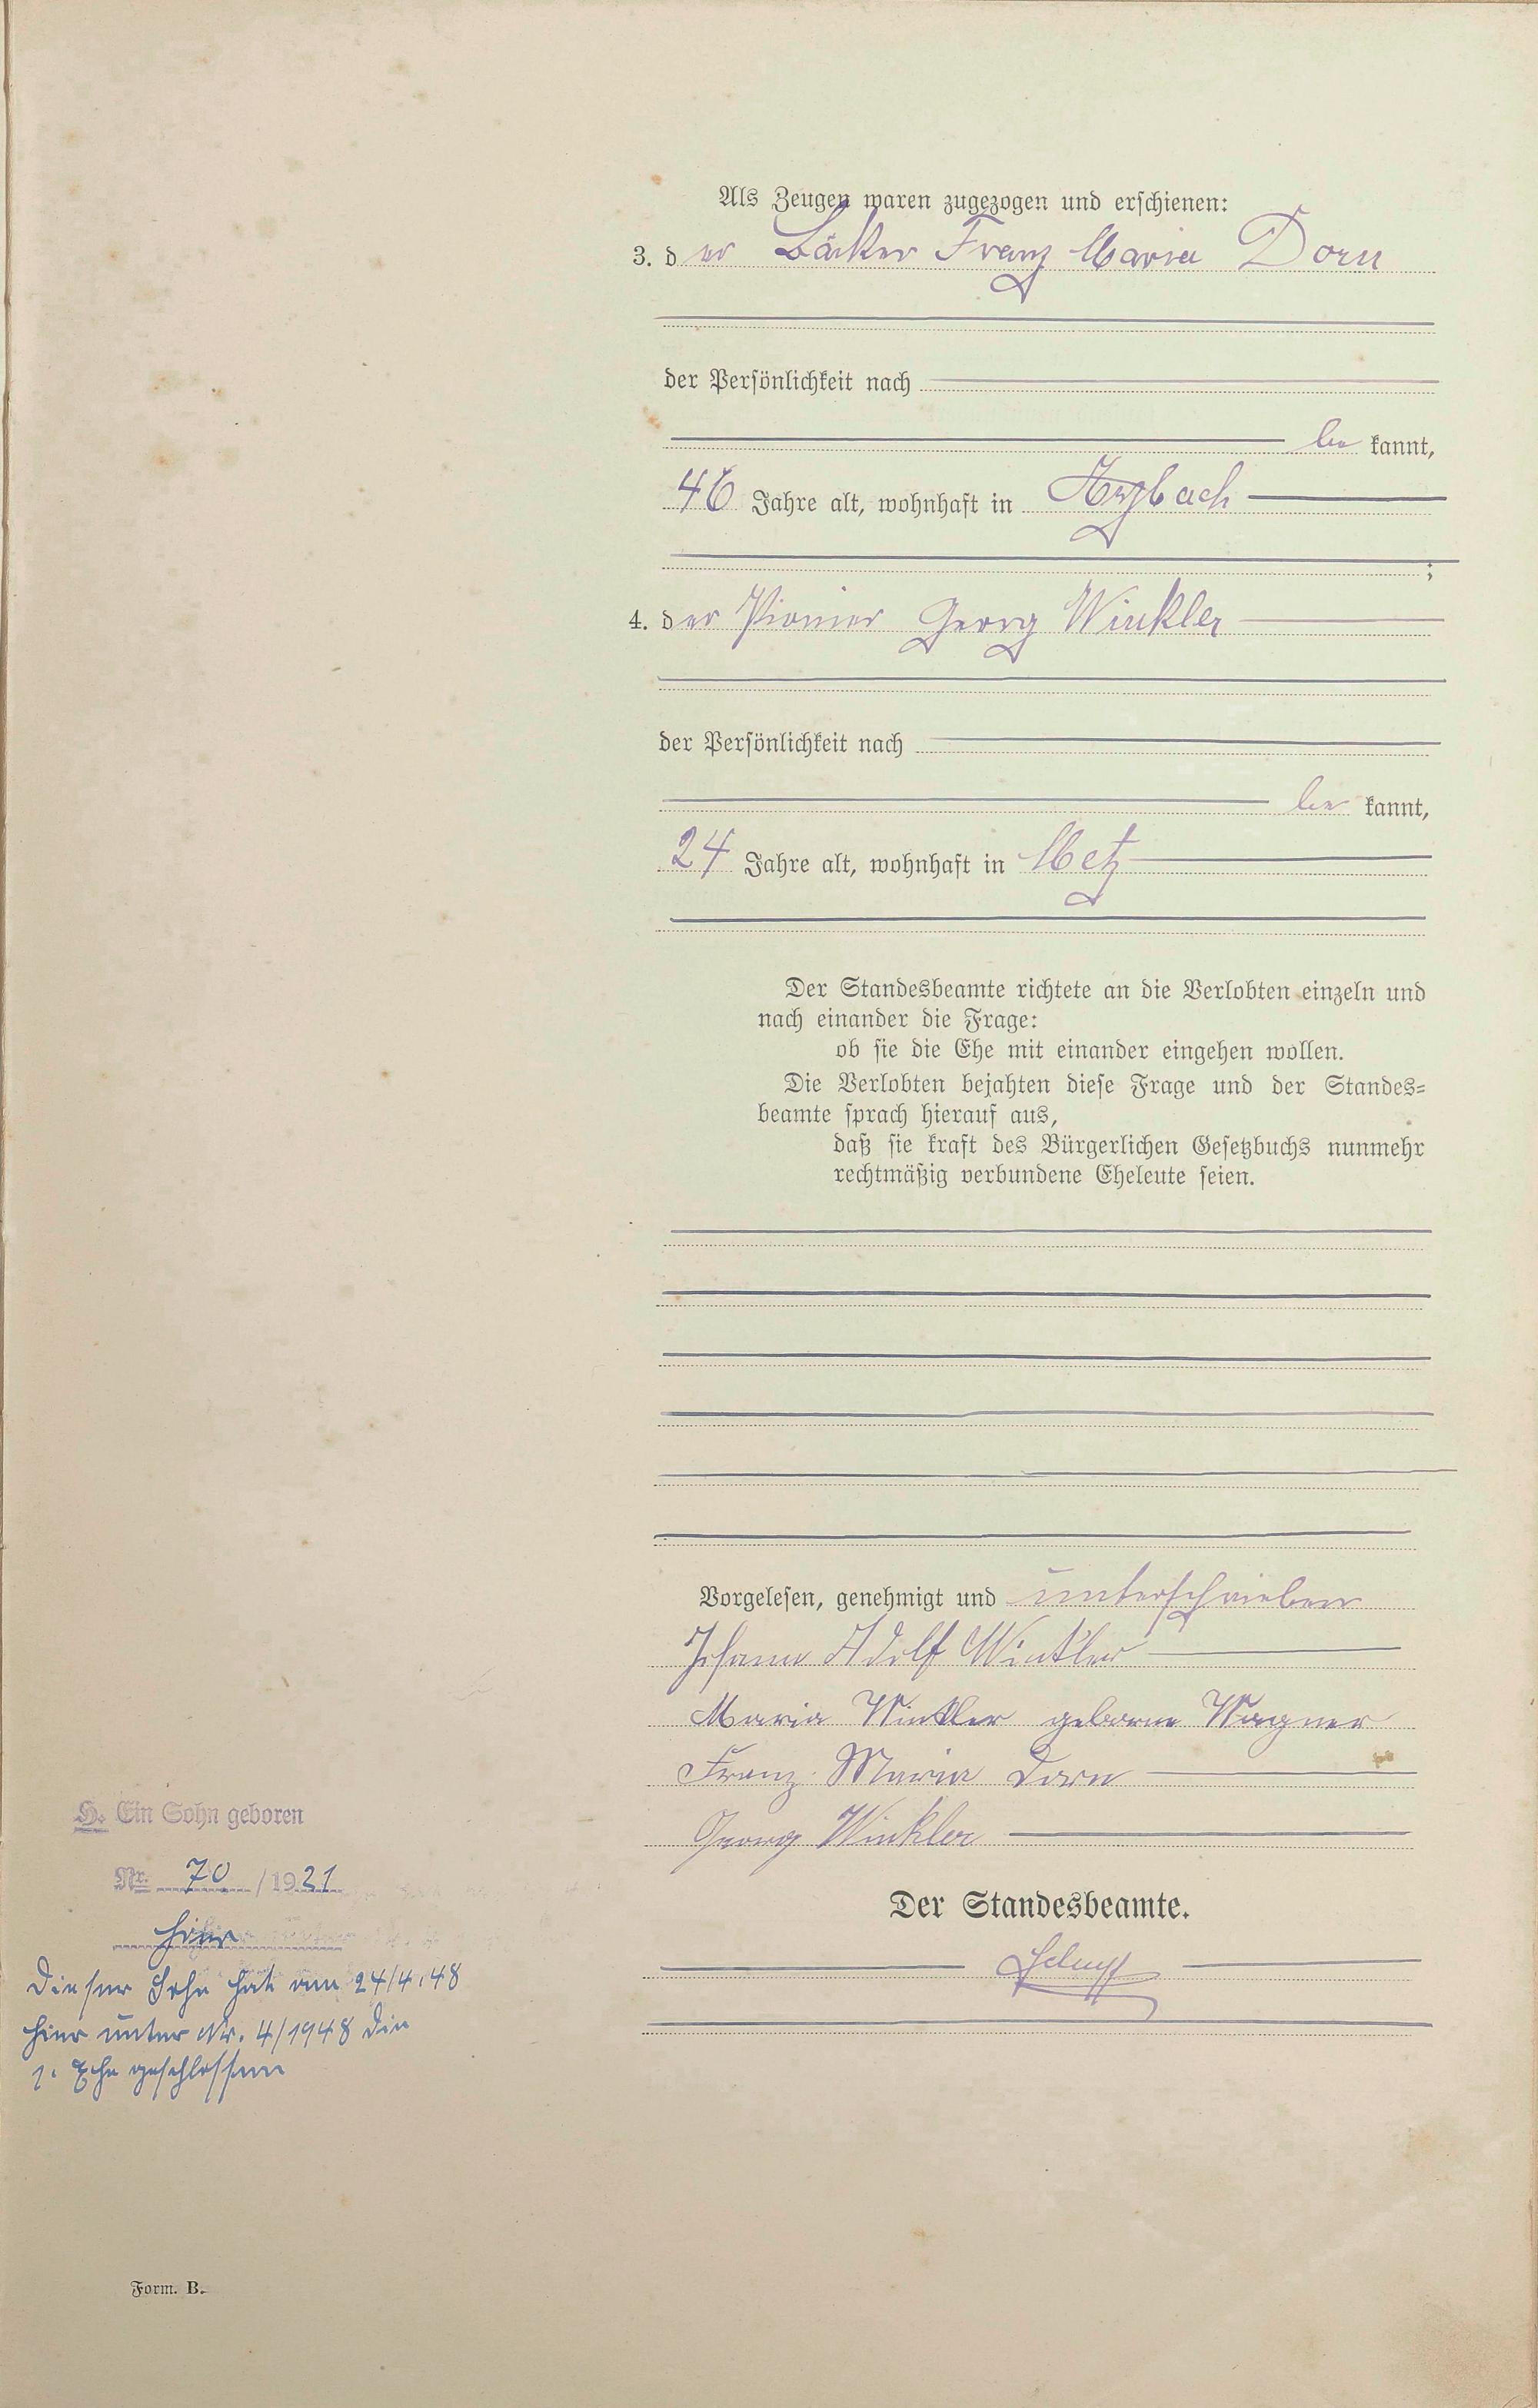 Als Zeugen waren zugezogen und erschienen:
3. der Bäcker Franz Maria Dorn
der Persönlichkeit nach
be kannt,
46 Jahre alt, wohnhaft in
;
4. der Pionier Georg Winkler
der Persönlichkeit nach
be kannt,
24 Jahre alt, wohnhaft in Metz
Der Standesbeamte richtete an die Verlobten einzeln und
nach einander die Frage:
ob sie die Ehe mit einander eingehen wollen.
Die Verlobten bejahten diese Frage und der Standes=
beamte sprach hierauf aus,
daß sie kraft des Bürgerlichen Gesetzbuchs nunmehr
rechtmäßig verbundene Eheleute seien.
Vorgelesen, genehmigt und unterschrieben
Johann Adolf Winkler
Maria Winkler geborne Wagner
Franz Maria Dorn
Georg Winkler
Der Standesbeamte.
H. Ein Sohn geboren
Nr. 70 /1921
hier
Dieser Sohn hat am 24/4.48
hier unter Nr. 4/1948 die
1. Ehe geschlossen
Form. B.